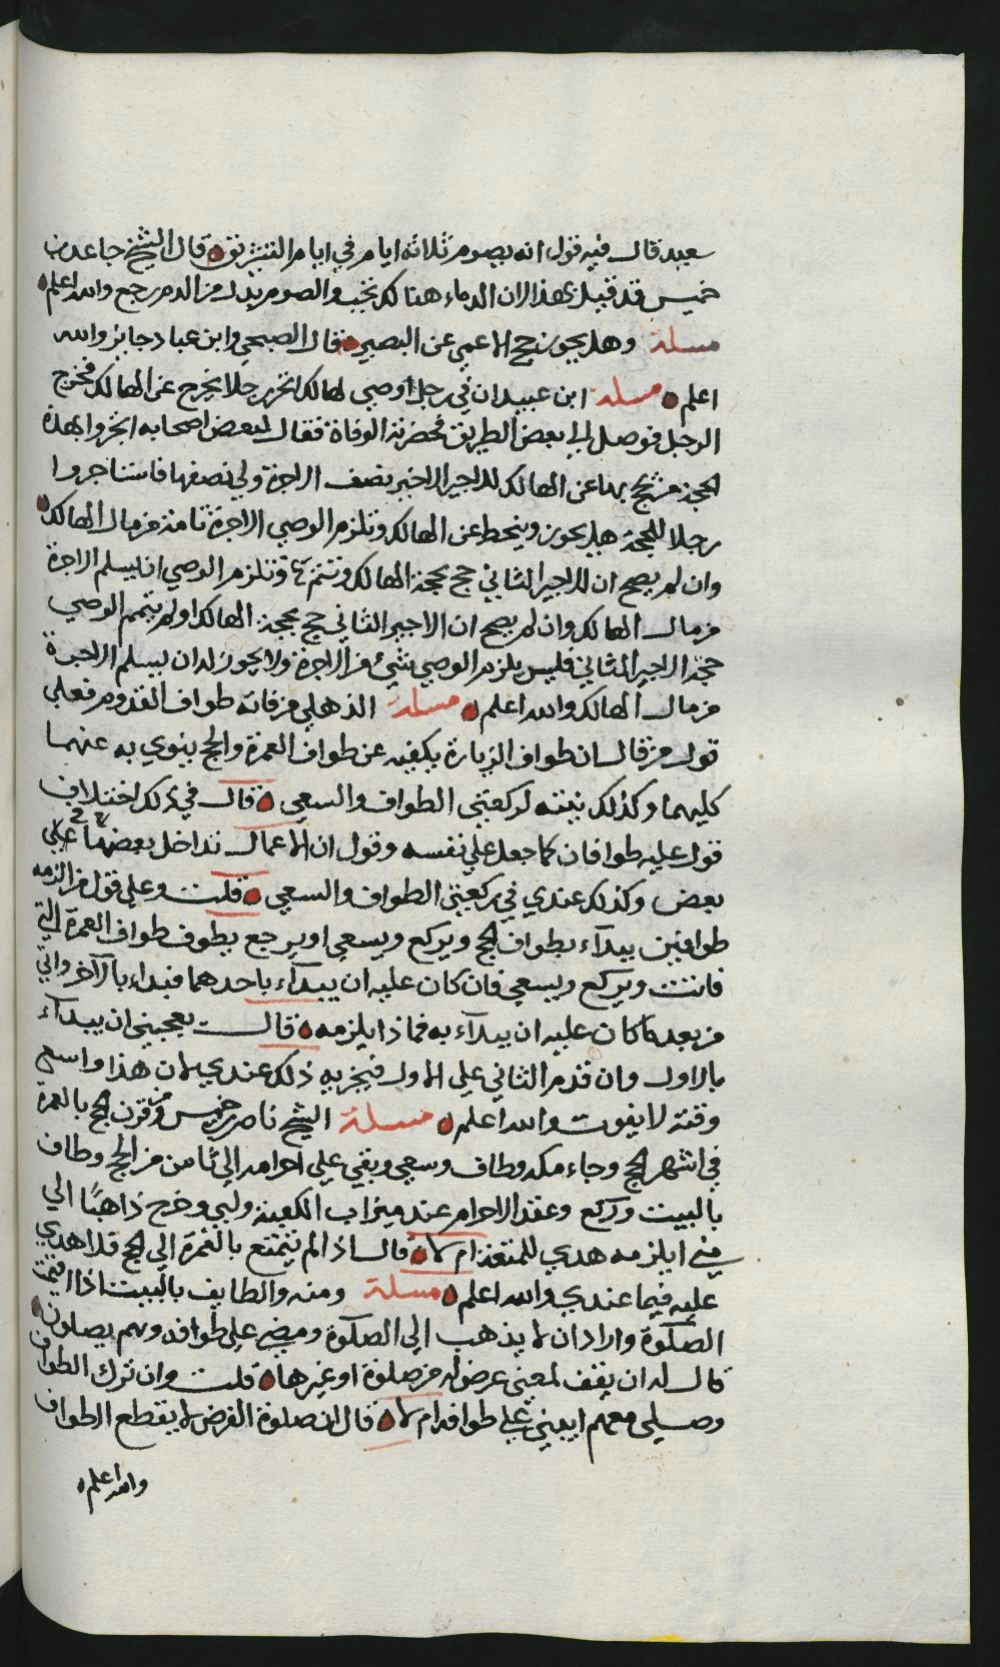 سعيد قال فيه قول انه يصوم ثلاثة ايام في ايام التشريق قال الشيخ جاعد بن
خميس قد قيل بهذا لان الدماء هنالك تجب والصوم بدل من الدم رجع والله اعلم
مسلة وهل يجوز حج الاعمى عن البصير قال الصبحي وابن عباد جائز والله
اعلم مسلة ابن عبيدان في رجل اوصى لهالك اتجر رجلا يخرج عن الهالك فخرج
الرجل فوصل الى بعض الطريق فحضرته الوفاة فقال لبعض اصحابه اتجروا بهذه
الحجة من يحج بها عن الهالك للاجير الاخير نصف الاجرة ولي نصفها فاستاجروا
رجلا للحجة هل يجوز وينحط عن الهالك وتلزم الوصي الاجرة تامة من مال الهالك
وان لم يصح ان للاجير الثاني حج بحجة الهالك وتتم وتلزم الوصي ان يسلم الاجرة
من مال الهالك وان لم يصح ان الاجير الثاني حج بحجة الهالك او لم يتمم الوصي
حجة الاجير الثاني فليس يلزم الوصي شيء من الاجرة ولا يجوز له ان يسلم الاجرة
من مال الهالك والله اعلم مسلة الذهلي من فاته طواف القدوم فعلى
قول من قال ان طواف الزيارة يكفيه عن طواف العمرة والحج ينوي به عنهما
كليهما وكذلك نيته لركعتي الطواف والسعي قال في ذلك اختلاف
قول عليه طوافان كما جعل على نفسه وقول ان الاعمال تداخل بعضها في
بعض وكذلك عندي في ركعتي الطواف والسعي قلت وعلى قول من الزمه
طوافين يبدآء بطواف الحج ويركع ويسعى او يرجع يطوف طواف العمرة التي
فاتت ويركع ويسعى فان كان عليه ان يبدآء باحدهما فبداء بالآخر واتى
من بعد ما كان عليه ان يبدآء به فماذا يلزمه قال يعجبني ان يبدآء
بالاول وان قدم الثاني على الاول فيجزيه ذلك عندي لان هذا واسع
وقته لا يفوت والله اعلم مسلة الشيخ ناصر بن خميس من قرن الحج بالعمرة
في اشهر الحج وجاء مكه وطاف وسعى وبقي على احرامه الى ثامن من الحج وطاف
بالبيت وركع وعقد الاحرام عند ميزاب الكعبة ولبى وخرج ذاهبًا الى
منى ايلزمه هدي للمتعة ام لا قال اذا لم يتمتع بالعمرة الى الحج فلا هدي
عليه فيما عندي والله اعلم مسلة ومنه والطايف بالبيت اذا اقيمت
الصلاوة واراد ان لا يذهب الى الصلاوة ومضى على طوافه وهم يصلون
قال له ان يقف لمعنى عرض له من صلوة او غيرها قلت وان ترك الطواف
وصلى معهم ايبني على طوافه ام لا قال ان صلوة الفرض لا يقطع الطواف
والله اعلم